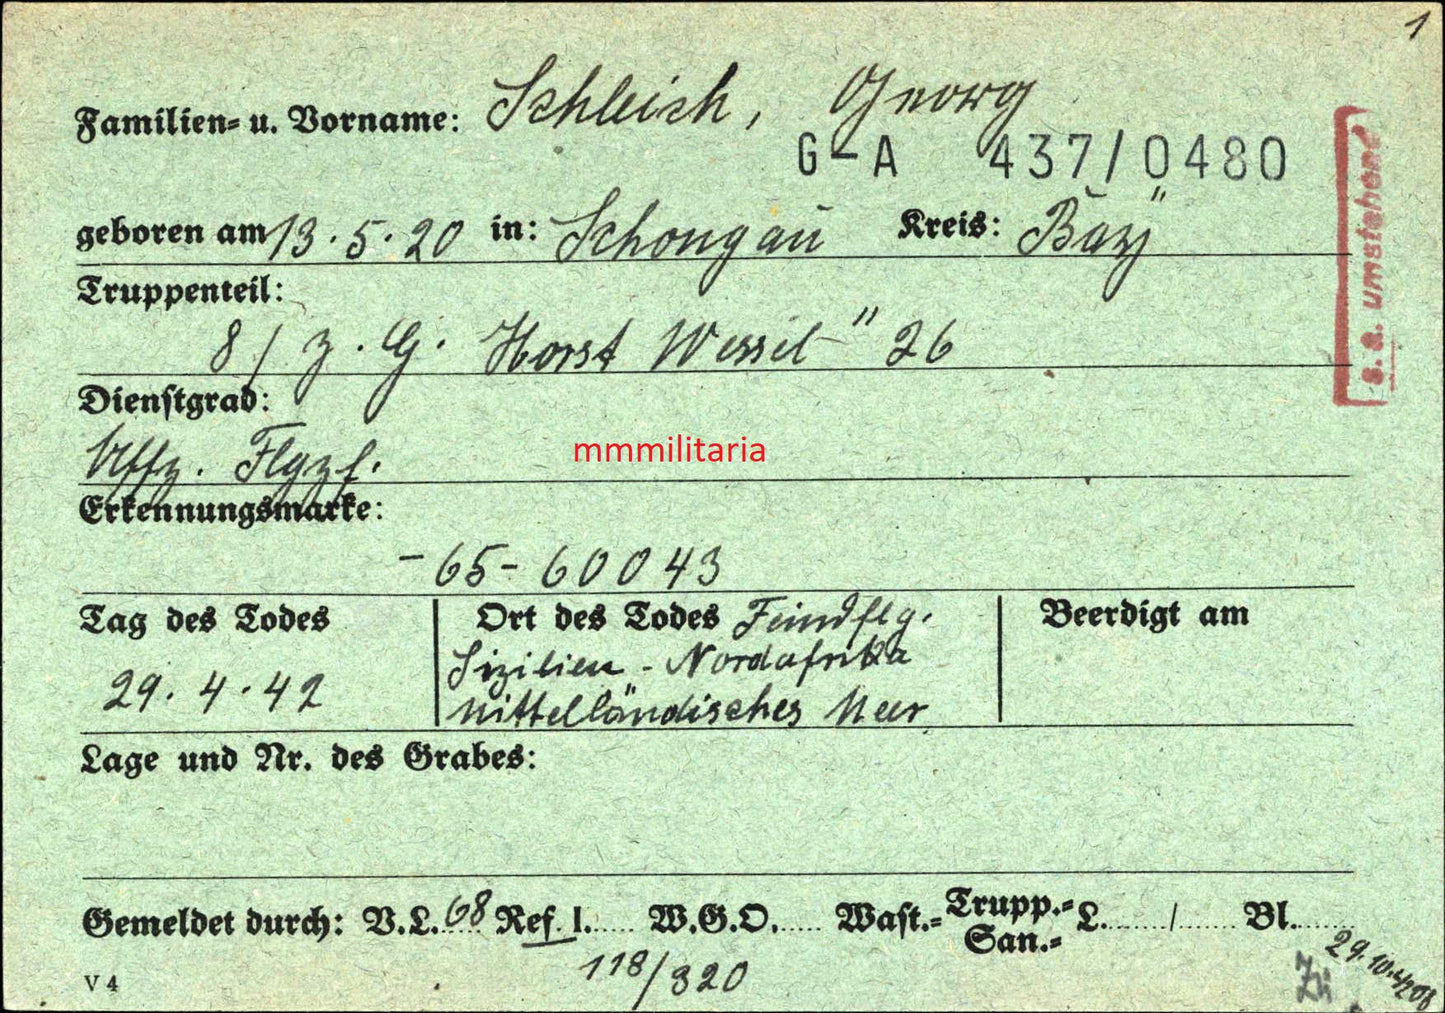 1
Familien- u. Vorname: Schleich, Georg
G-A 437/0480
geboren am 13.5.20 in: Schongau Kreis: Bay
s. a. umstehend
Truppenteil:
8/Z.G. Horst Wessel" 26
Dienstgrad:
Uffz. Flgzf.
mmmilitaria
Erkennungsmarke:
-65- 60043
Tag des Todes
29.4.42
Ort des Todes Feindflg.
Sizilien - Nordafrika
Mittelländisches Meer
Beerdigt am
Lage und Nr. des Grabes:
Gemeldet durch: V.L. 68 Ref I. W.G.O. Wast.- Trupp.- San.- L. / Bl.
118/320
V 4